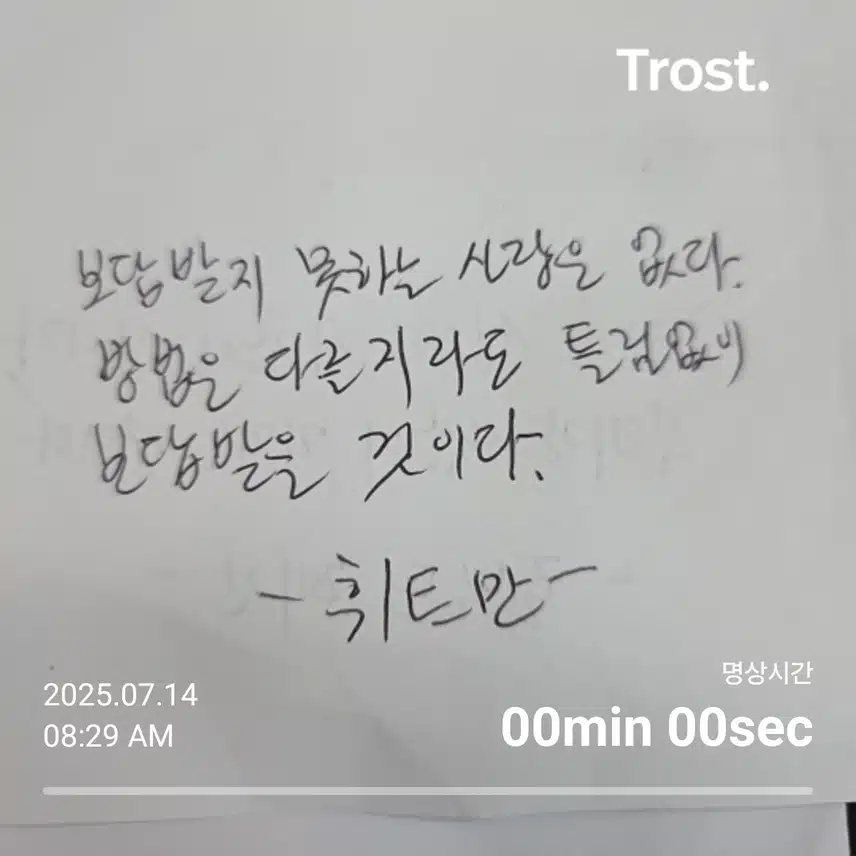 Trost.
보답받지 못하는 사랑은 없다.
방법은 다를지라도 틀림없이
보답받을 것이다.
- 휘트만 -
2025.07.14
08:29 AM
명상시간
00min 00sec